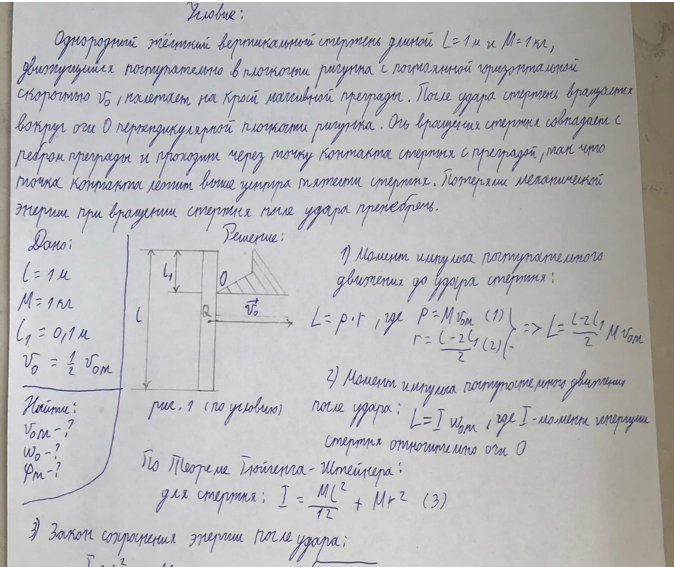 Условие:
Однородный жёсткий вертикальный стержень длиной L=1м и M=1кг,
движущийся поступательно в плоскости рисунка с постоянной горизонтальной
скоростью v₀, налетает на край массивной преграды. После удара стержень вращается
вокруг оси O перпендикулярной плоскости рисунка. Ось вращения стержня совпадает с
ребром преграды и проходит через точку контакта стержня с преградой, так что
точка контакта лежит выше центра тяжести стержня. Потерями механической
энергии при вращении стержня после удара пренебречь.
Дано:
L=1м
M=1кг
L₁=0,1м
v₀ = 1/2 v₀m
Найти:
v₀m-?
ω₀-?
φm-?
Решение:
L₁
O
L
v₀
рис. 1 (по условию)
1) Момент импульса поступательного
движения до удара стержня:
L=p·r, где p=Mv₀m (1)
r=(L-2L₁)/2 (2)
=> L=(L-2L₁)/2 Mv₀m
2) Момент импульса движения
после удара: L=I ω₀m, где I-момент инерции
стержня относительно оси O
По Теореме Гюйгенса-Штейнера:
для стержня: I = ML²/12 + Mr² (3)
3) Закон сохранения энергии после удара: